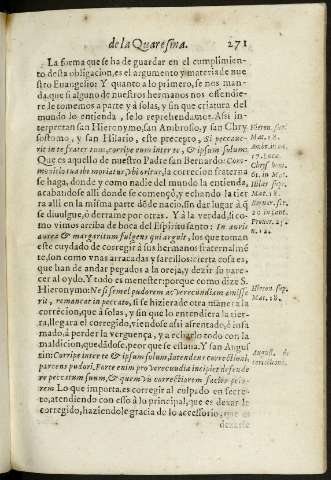 de la Quaresma. 271
La forma que se ha de guardar en el cumplimien-
to desta obligacion, es el argumento y materia de nue
stro Euangelio: Y quanto a lo primero, se nos man-
da, que si alguno de nuestros hermanos nos offendie
re le tomemos a parte y à solas, y sin que criatura del
mundo lo entienda, se lo reprehendamos. Assi in-
terpretan san Hieronymo, san Ambrosio, y san Chry
sostomo, y san Hilario, este precepto, Si peccaue-
rit in te frater tuus, corripe eum inter te, & ipsum solum.
Que es aquello de nuestro Padre san Bernardo: Com-
monitio tua ibi moriatur, vbi oritur, la correcion fraterna
se haga, donde y como nadie del mundo la entienda,
acabandose alli donde se començò, y echando la tier
ra alli en la misma parte dõde nacio, sin dar lugar à q̃
se diuulgue, ò derrame por otras. Y à la verdad, si co-
mo vimos arriba de boca del Espiritu santo: In auris
aurea & margaritum fulgens qui arguit, los que toman
este cuydado de corregir à sus hermanos fraternalmẽ
te, son como vnas arracadas y sarcillos: cierta cosa es,
que han de andar pegados a la oreja, y dezir su pare-
cer al oydo. Y todo es menester: porque como dize S.
Hieronymo: Ne si semel pudorem ac verecundiam amisse
rit, remaneat in peccato, si se hiziera de otra manera la
correcion, que à solas, y sin que lo entendiera la tier-
ra, llegara el corregido, viendose assi afrentado, è infa
mado, à perder la verguença, y a recharlo todo con la
maldicion, quedãdose, peor que se estaua. Y san Augus
tin: Corripe inter te & ipsum solum, intendens correctioni,
parcens pudori. Forte enim præ verecundia incipiet defende
re peccatum suum, & quem vis correctiorem facies peio-
rem. Lo que importa, es corregir al culpado en secre-
to, atendiendo con esso à lo principal, que es dexar le
corregido, haziendole gracia de lo accessorio, que es
dexarle
Hieron. sup.
Mat. 18.
17. Luc.
Chrys. hom.
Mat. 18.
Hieron. sup.
Mat. 18.
August. de